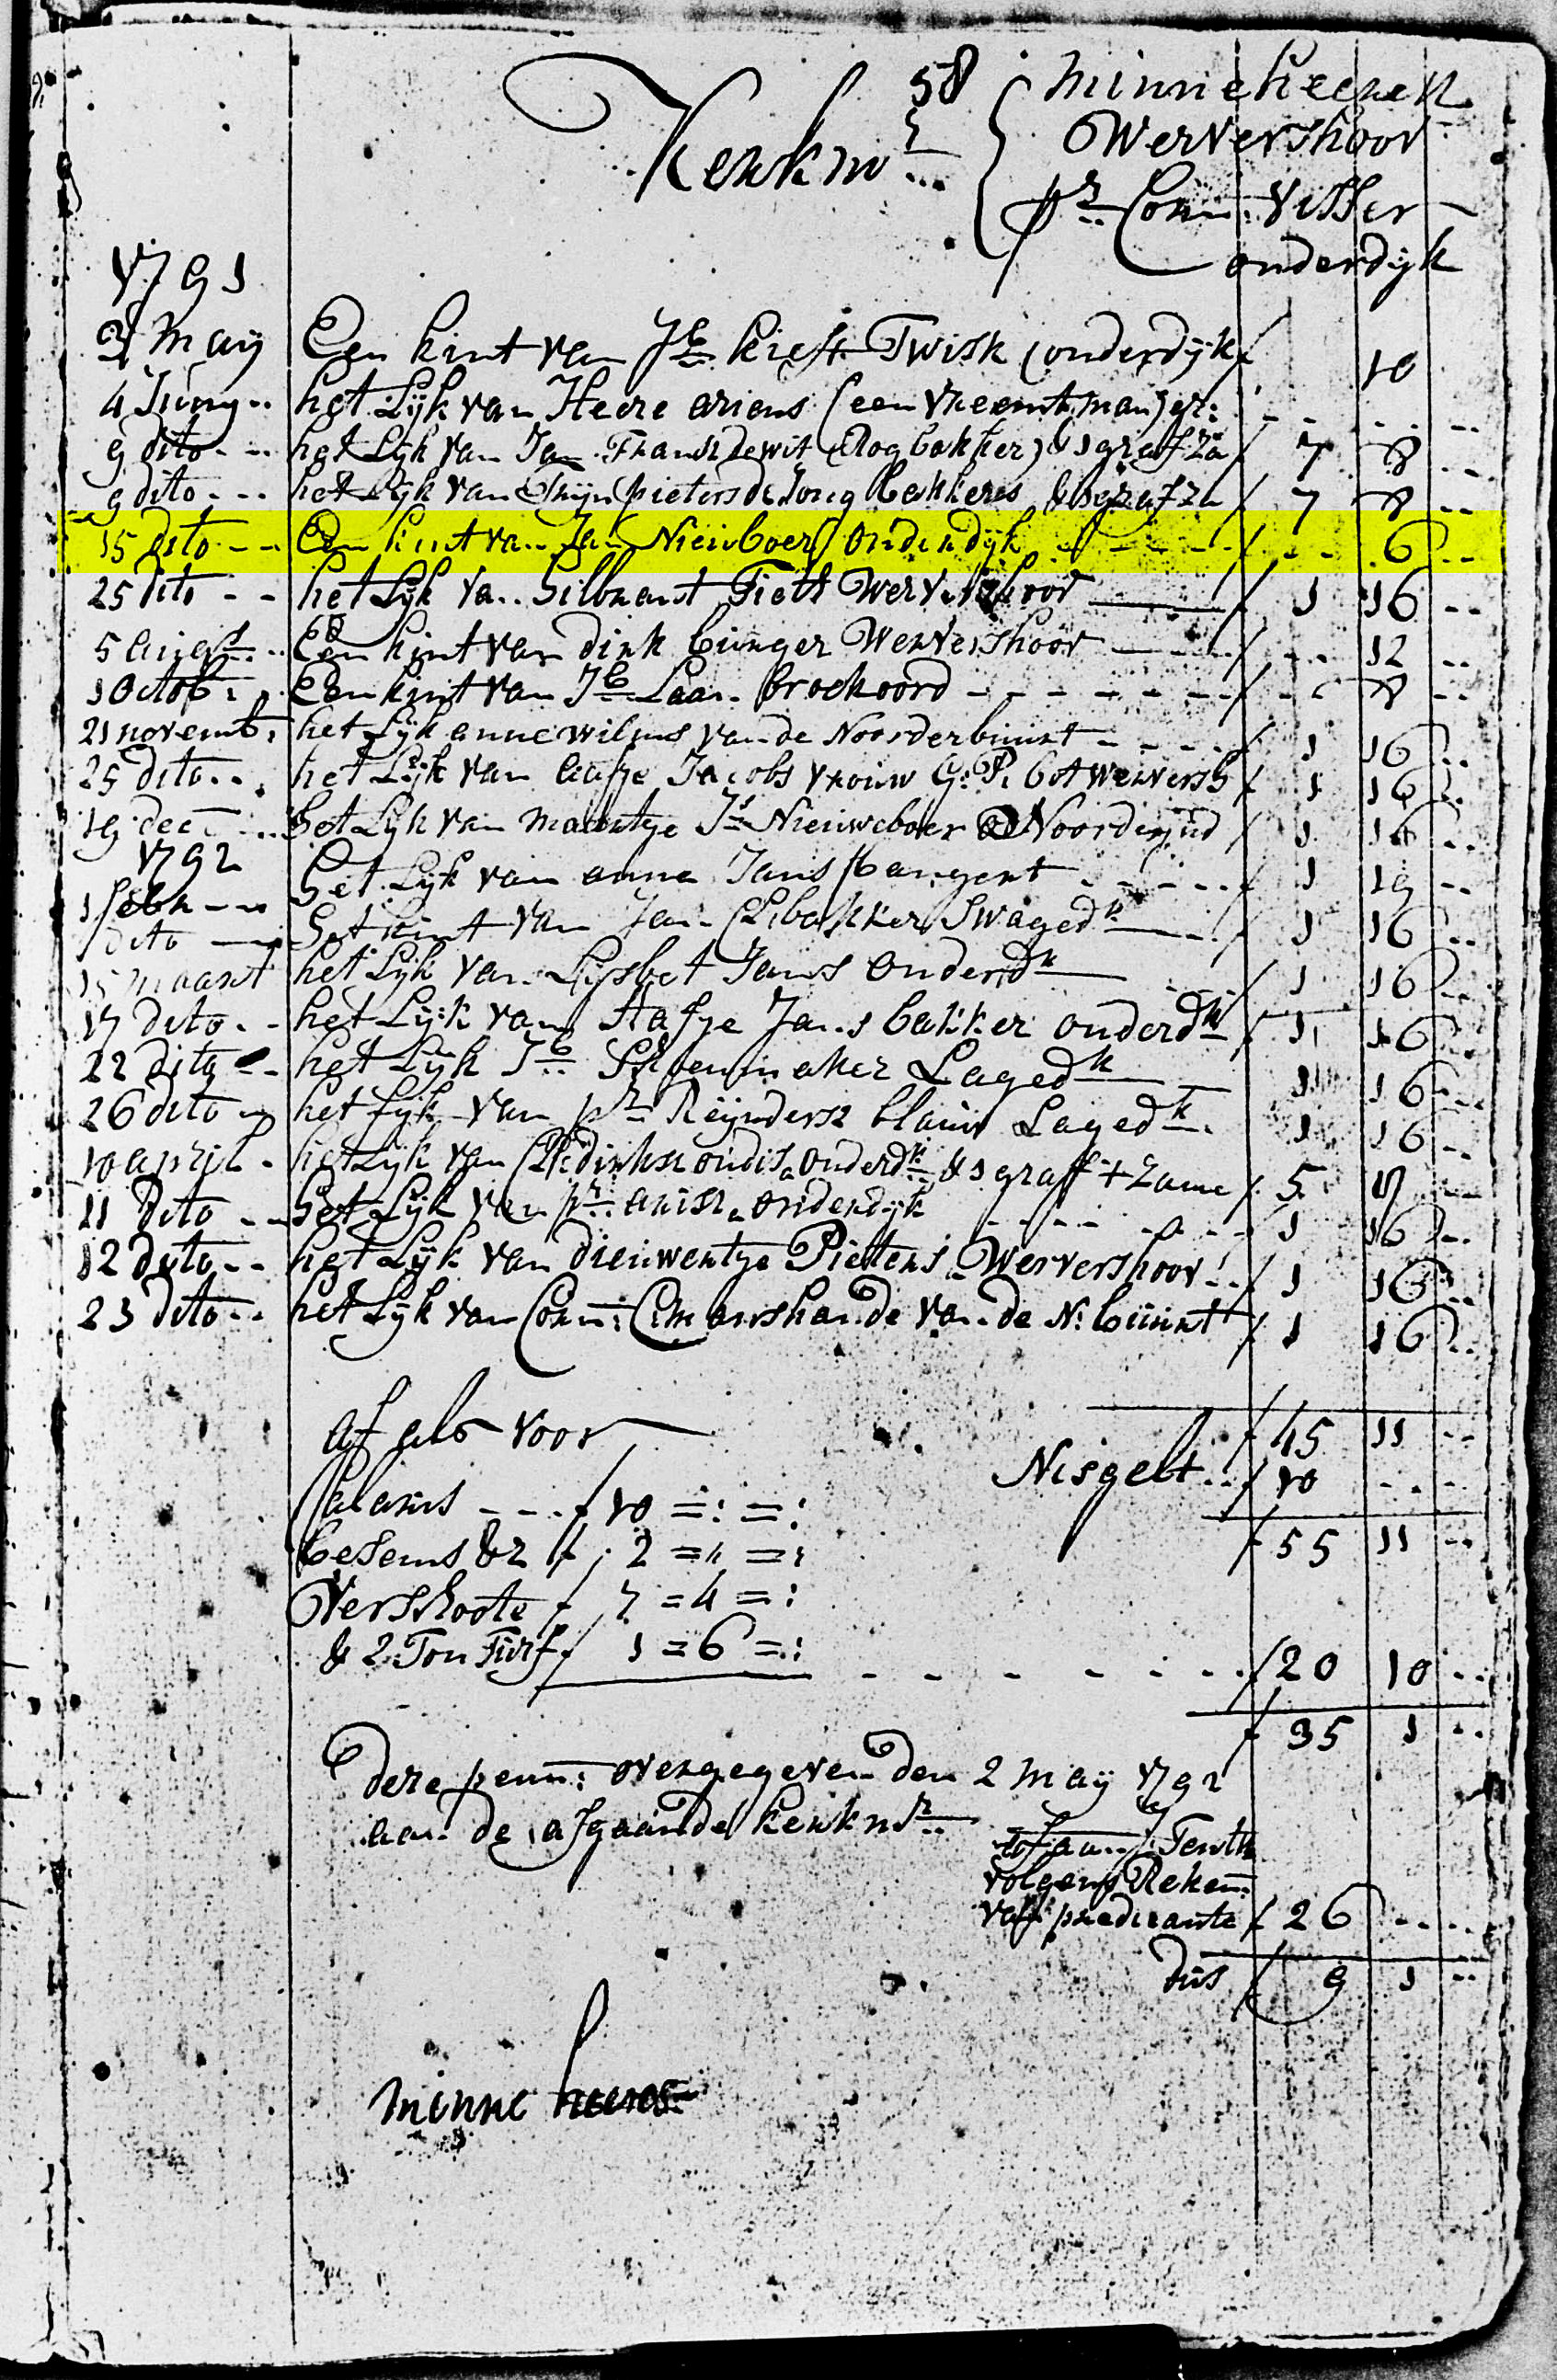 58
Kerkmr
Minne heeres
Wervershoov
pr Corn: Visser
onderdyk
1791
2 Maij Een kint van Jb kieft Twisk (onderdijk f 10
4 Junij het Lijk van Heere ariens (een vreemt man) gr:
9 dito het Lijk van Jan Fransz dewit (Rogbakker) & 1 graf za f 7 8
9 dito het Lijk van Trijn pieters de Jong bakkeres & 1 graf za f 7 8
15 dito Een kint van Jan Nieuboer / Onderdijk f 6
25 dito het Lijk van Silbrant Fiett Wervershoov f 1 16
5 augst Een kint van dirk burger Wervershoov f 12
1 Octob: Een kint van Jb Laan broekoord f 8
21 novemb: het Lijk anne wilms van de Noorderbuurt f 1 16
25 dito het Lijk van aafje Jacobs vrouw G: P: bot werversh f 1 16
19 dec het Lijk van Maartje Js Nieuweboer Noordereind f 1 16
1792
1 febr het Lijk van anna Jans f 1 19
dito het kint van Jan bakker Swaagedk f 1 16
15 maart het Lijk van Lijsbet Jans Onderdk f 1 16
17 dito het Lijk van Aafje Jans bakker onderdk f 1 16
22 dito het Lijk Jb Schoenmaker Lagedk 1 16
26 dito het Lijk van pr Reijndersz blauw Lagedk 1 16
10 april het Lijk van dirksz Onderdk & 1 graff + zame f 5 17
11 dito het Lijk van pr arisz onderdijk 1 16
12 dito het Lijk van dieuwertje Pieters Wervershoov f 1 16
23 dito het Lijk van Corn: van de N: buurt f 1 16
af als voor f 45 11
Nisgelt f 10
Salaris f 10
f 55 11
besems &z f 2
Verschoote f 7 = 4
& 2 Ton Turf f 1 = 6
f 20 10
f 35 1
deze penn: overgegeven den 2 maij 1792
aan de afgaande kerkmr
volgens Reken:
van predicante f 26
dus f 9 1
minne heeres